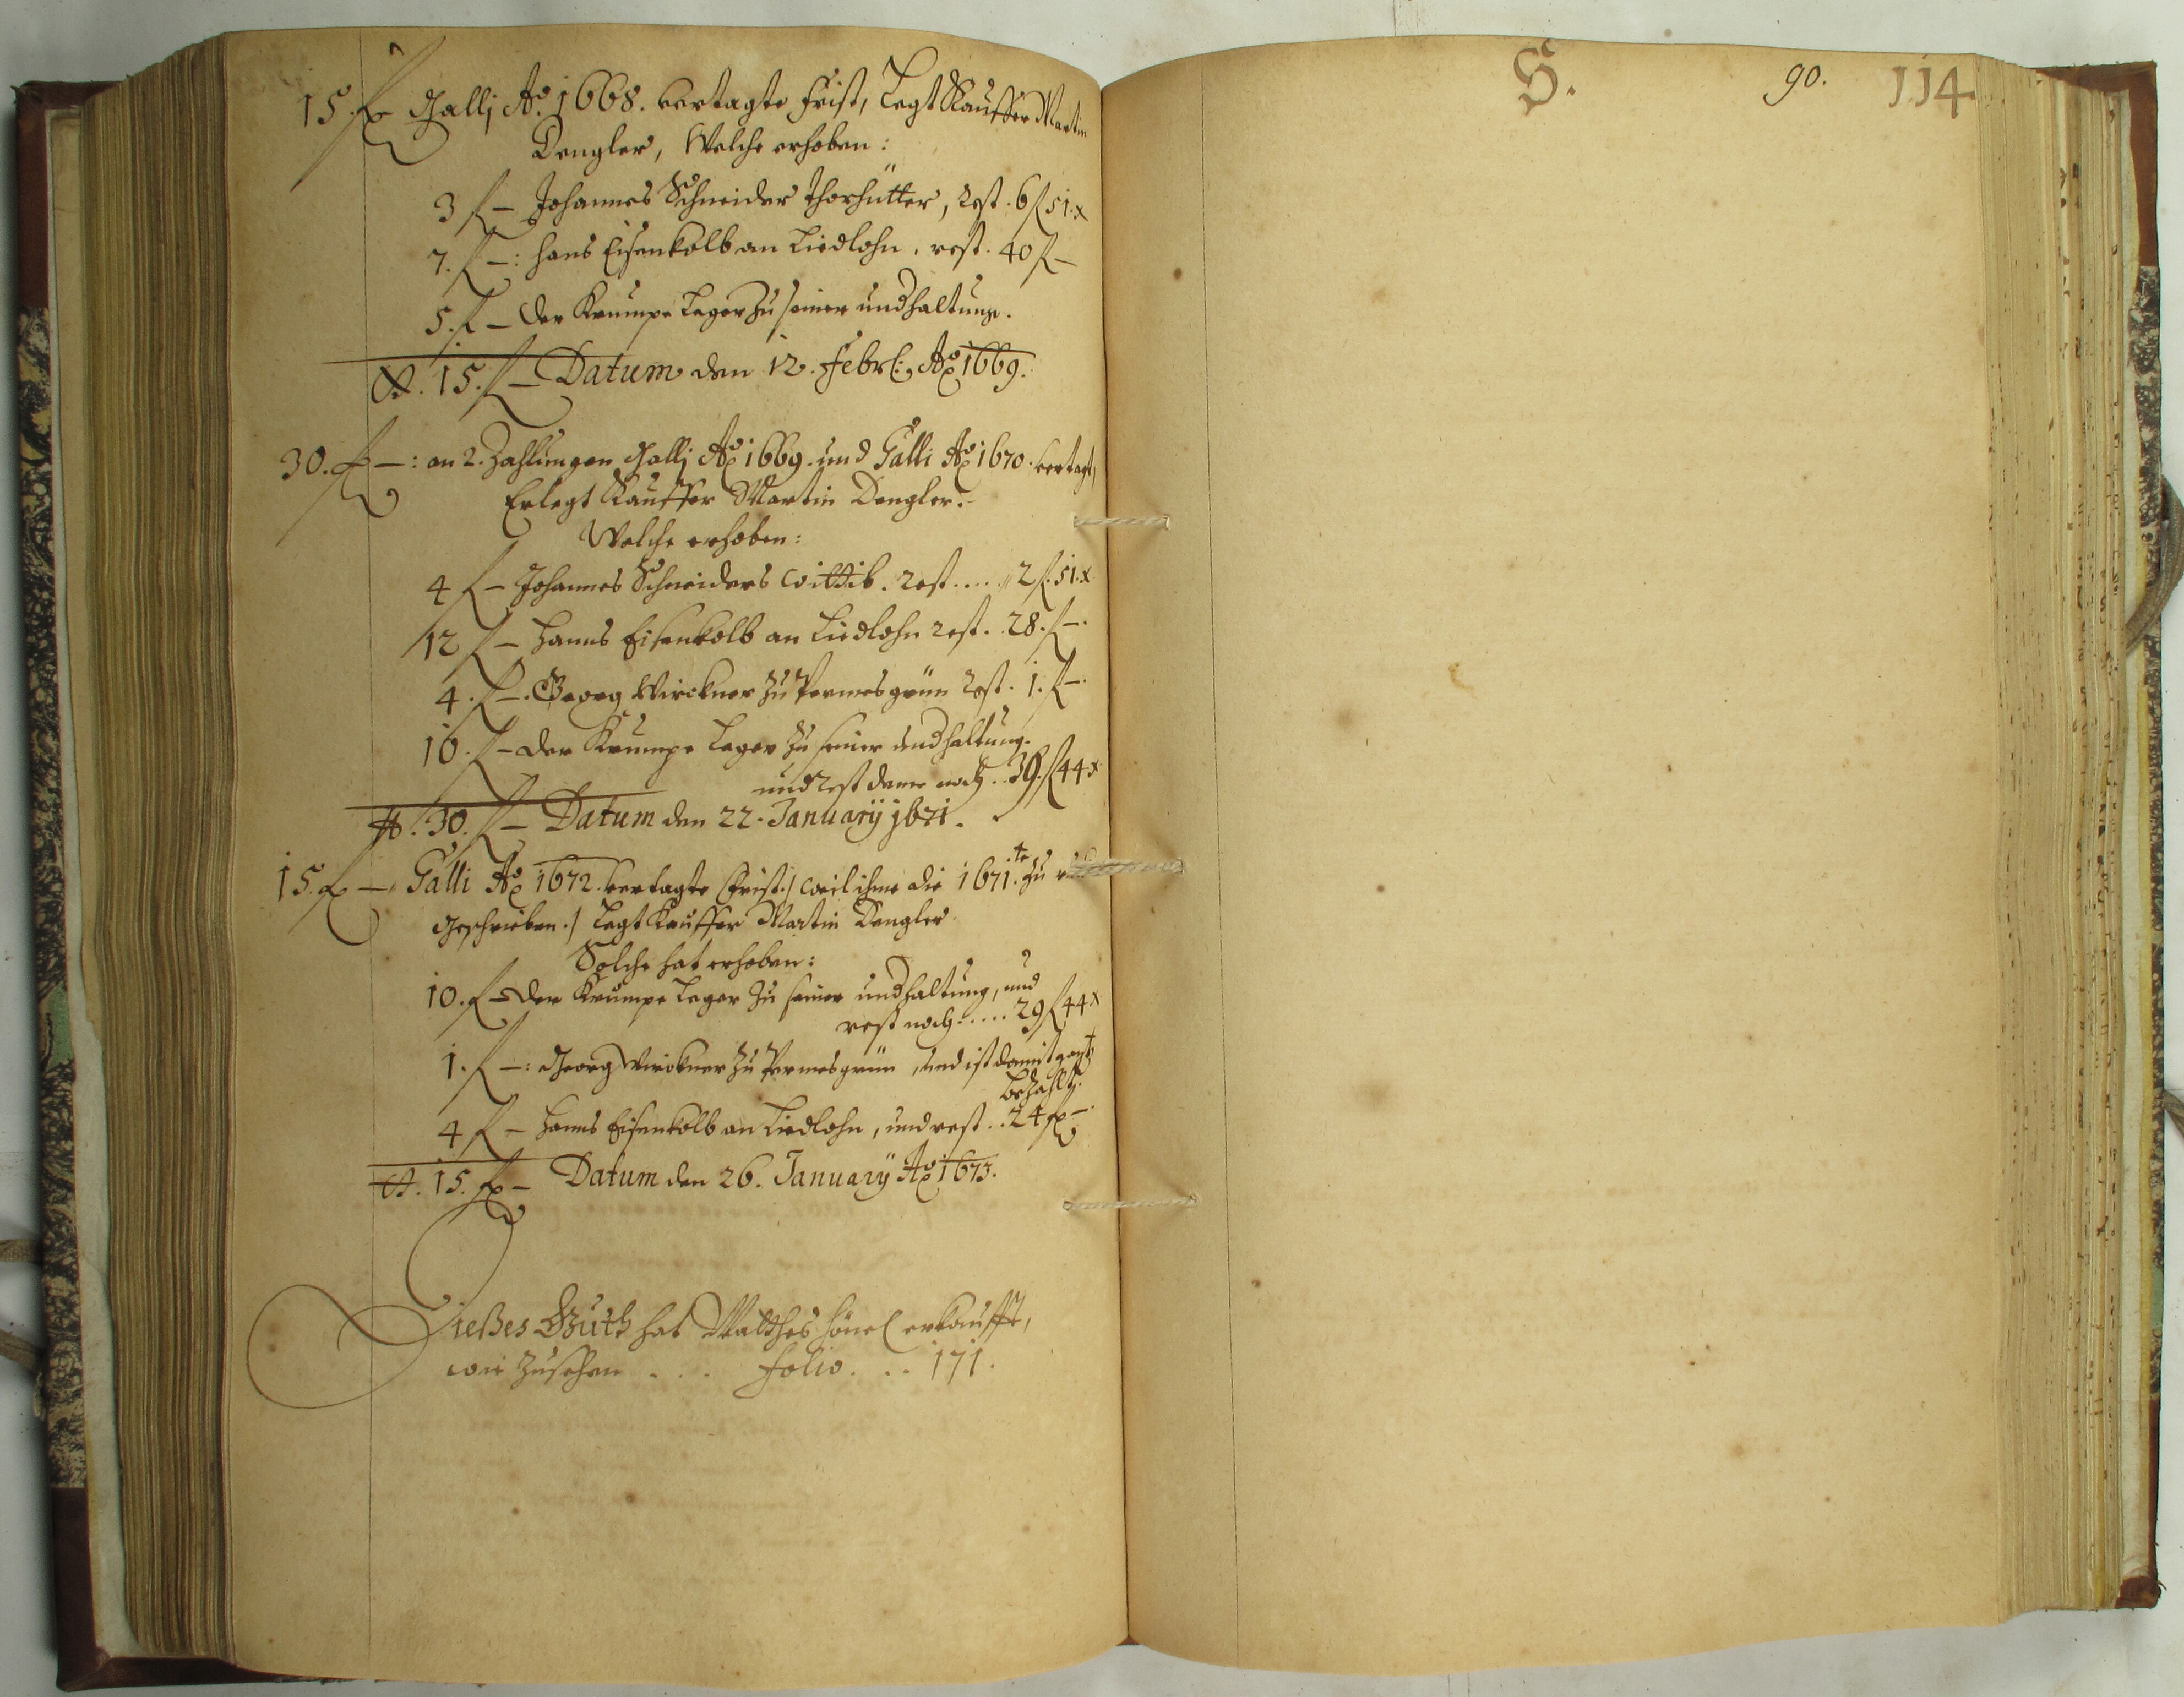 15. f Gallj Ao. 1668. vertagte frist, Legt Kauffer Martin
Dengler, Welche erhoben:
3 f — Johannes Schneider Thorhütter, Rest. 6 f 51. x
7. f —: hans Eisenkolb an Liedlohn, rest. 40 f —
5. f — Der Krumpe Leger zu seiner undhaltung.
St. 15. f — Datum den 12. Febrl: Ao 1669.
30. f —: an 2. Zahlungen Gallj Ao 1669. und Galli Ao 1670. vertagt,
Erlegt Kauffer Martin Dengler.
Welche erhoben:
4 f — Johannes Schneiders Wittib. Rest .... 2 f. 51. x
12 f — Hanns Eisenkolb an Liedlohn Rest. 28. f —.
4. f —. Georg Wirckner zu Permesgrün Rest. 1. f —.
10. f — Der Krumpe Leger zu seiner undhaltung.
und Rest deme noch .. 39. f 44 x
St. 30. f — Datum den 22. January 1671.
15. f — Galli Ao 1672. vertagte Frist ./ weil ihme die 1671.te zu
geschrieben ./ Legt Kauffer Martin Dengler
Solche hat erhoben:
10. f — Der Krumpe Leger zu seiner undhaltung, und
rest noch ..... 29 f 44 x
1. f —: Georg Wirckner zu Permesgrün, und ist damit gantz
bezahlt.
4 f — Hanns Eisenkolb an Liedlohn, und rest .. 24 f —.
St. 15. f — Datum den 26. January Ao 1673.
Dießes Guth hat Matthes Hönel erkaufft,
wie zusehen . . . folio . . . 171.
S.
90.
114.